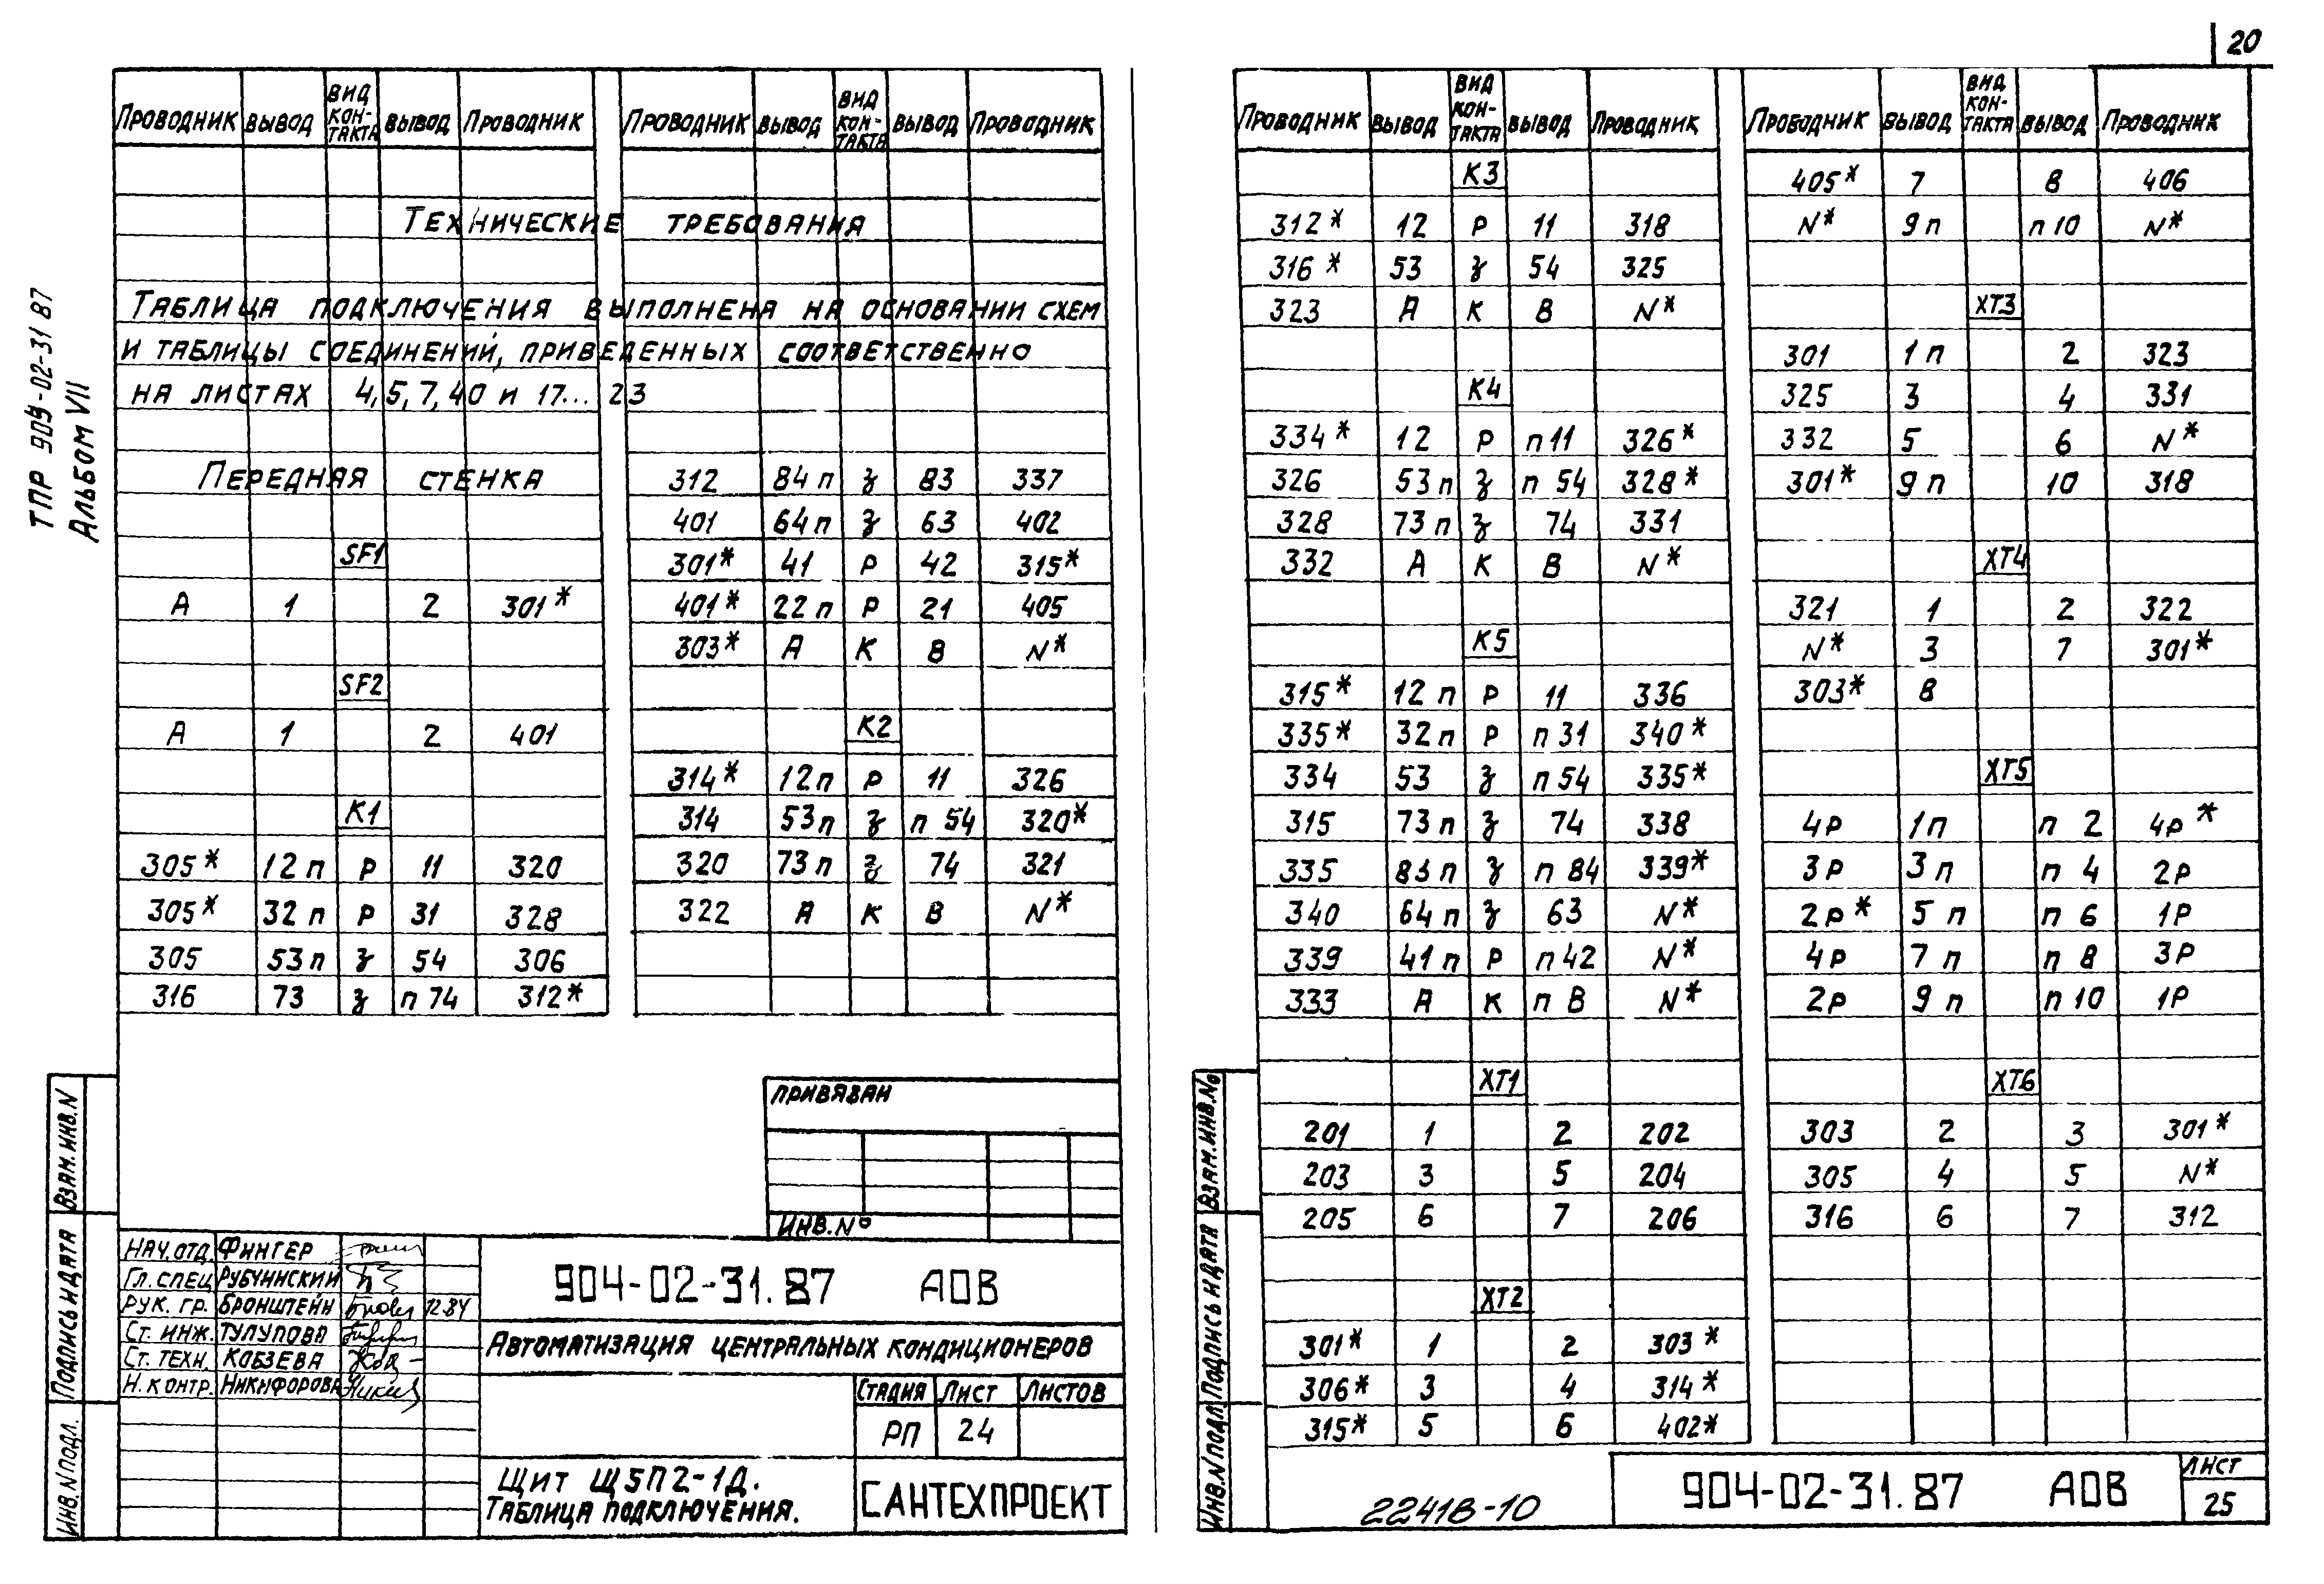 20
ТПР 904-02-31 87
Альбом VII
Проводник вывод вид контакта вывод Проводник Проводник вывод вид контакта вывод Проводник
Технические требования
Таблица подключения выполнена на основании схем
и таблицы соединений, приведенных соответственно
на листах 4, 5, 7, 40 и 17... 23
Передняя стенка
SF1
А 1 2 301*
SF2
А 1 2 401
К1
305* 12 п Р 11 320
305* 32 п Р 31 328
305 53 п з 54 306
316 73 з п 74 312*
312 84 п з 83 337
401 64 п з 63 402
301* 41 Р 42 315*
401* 22 п Р 21 405
303* А К В N*
К2
314* 12 п Р 11 326
314 53 п з п 54 320*
320 73 п з 74 321
322 А К В N*
Привязан
Инв. №
Нач. отд. Фингер
Гл. спец Рубчинский
Рук. гр. Бронштейн 12.84
Ст. инж. Тулупова
Ст. техн. Кобзева
Н. контр. Никифорова
904-02-31.87 АОВ
Автоматизация центральных кондиционеров
Стадия Лист Листов
РП 24
Щит Щ5П2-1Д.
Таблица подключения.
САНТЕХПРОЕКТ
Взам. инв. N
Подпись и дата
Инв. N подл.
Проводник вывод вид контакта вывод Проводник Проводник вывод вид контакта вывод Проводник
К3
312* 12 Р 11 318
316* 53 з 54 325
323 А К В N*
К4
334* 12 Р п 11 326*
326 53 п з п 54 328*
328 73 п з 74 331
332 А К В N*
К5
315* 12 п Р 11 336
335* 32 п Р п 31 340*
334 53 з п 54 335*
315 73 п з 74 338
335 83 п з п 84 339*
340 64 п з 63 N*
339 41 п Р п 42 N*
333 А К п В N*
ХТ1
201 1 2 202
203 3 5 204
205 6 7 206
ХТ2
301* 1 2 303*
306* 3 4 314*
315* 5 6 402*
405* 7 8 406
N* 9 п п 10 N*
ХТ3
301 1 п 2 323
325 3 4 331
332 5 6 N*
301* 9 п 10 318
ХТ4
321 1 2 322
N* 3 7 301*
303* 8
ХТ5
4Р 1 п п 2 4Р*
3Р 3 п п 4 2Р
2Р* 5 п п 6 1Р
4Р 7 п п 8 3Р
2Р 9 п п 10 1Р
ХТ6
303 2 3 301*
305 4 5 N*
316 6 7 312
Взам. инв. №
Подпись и дата
Инв. N подл.
22418-10
904-02-31.87 АОВ
Лист
25